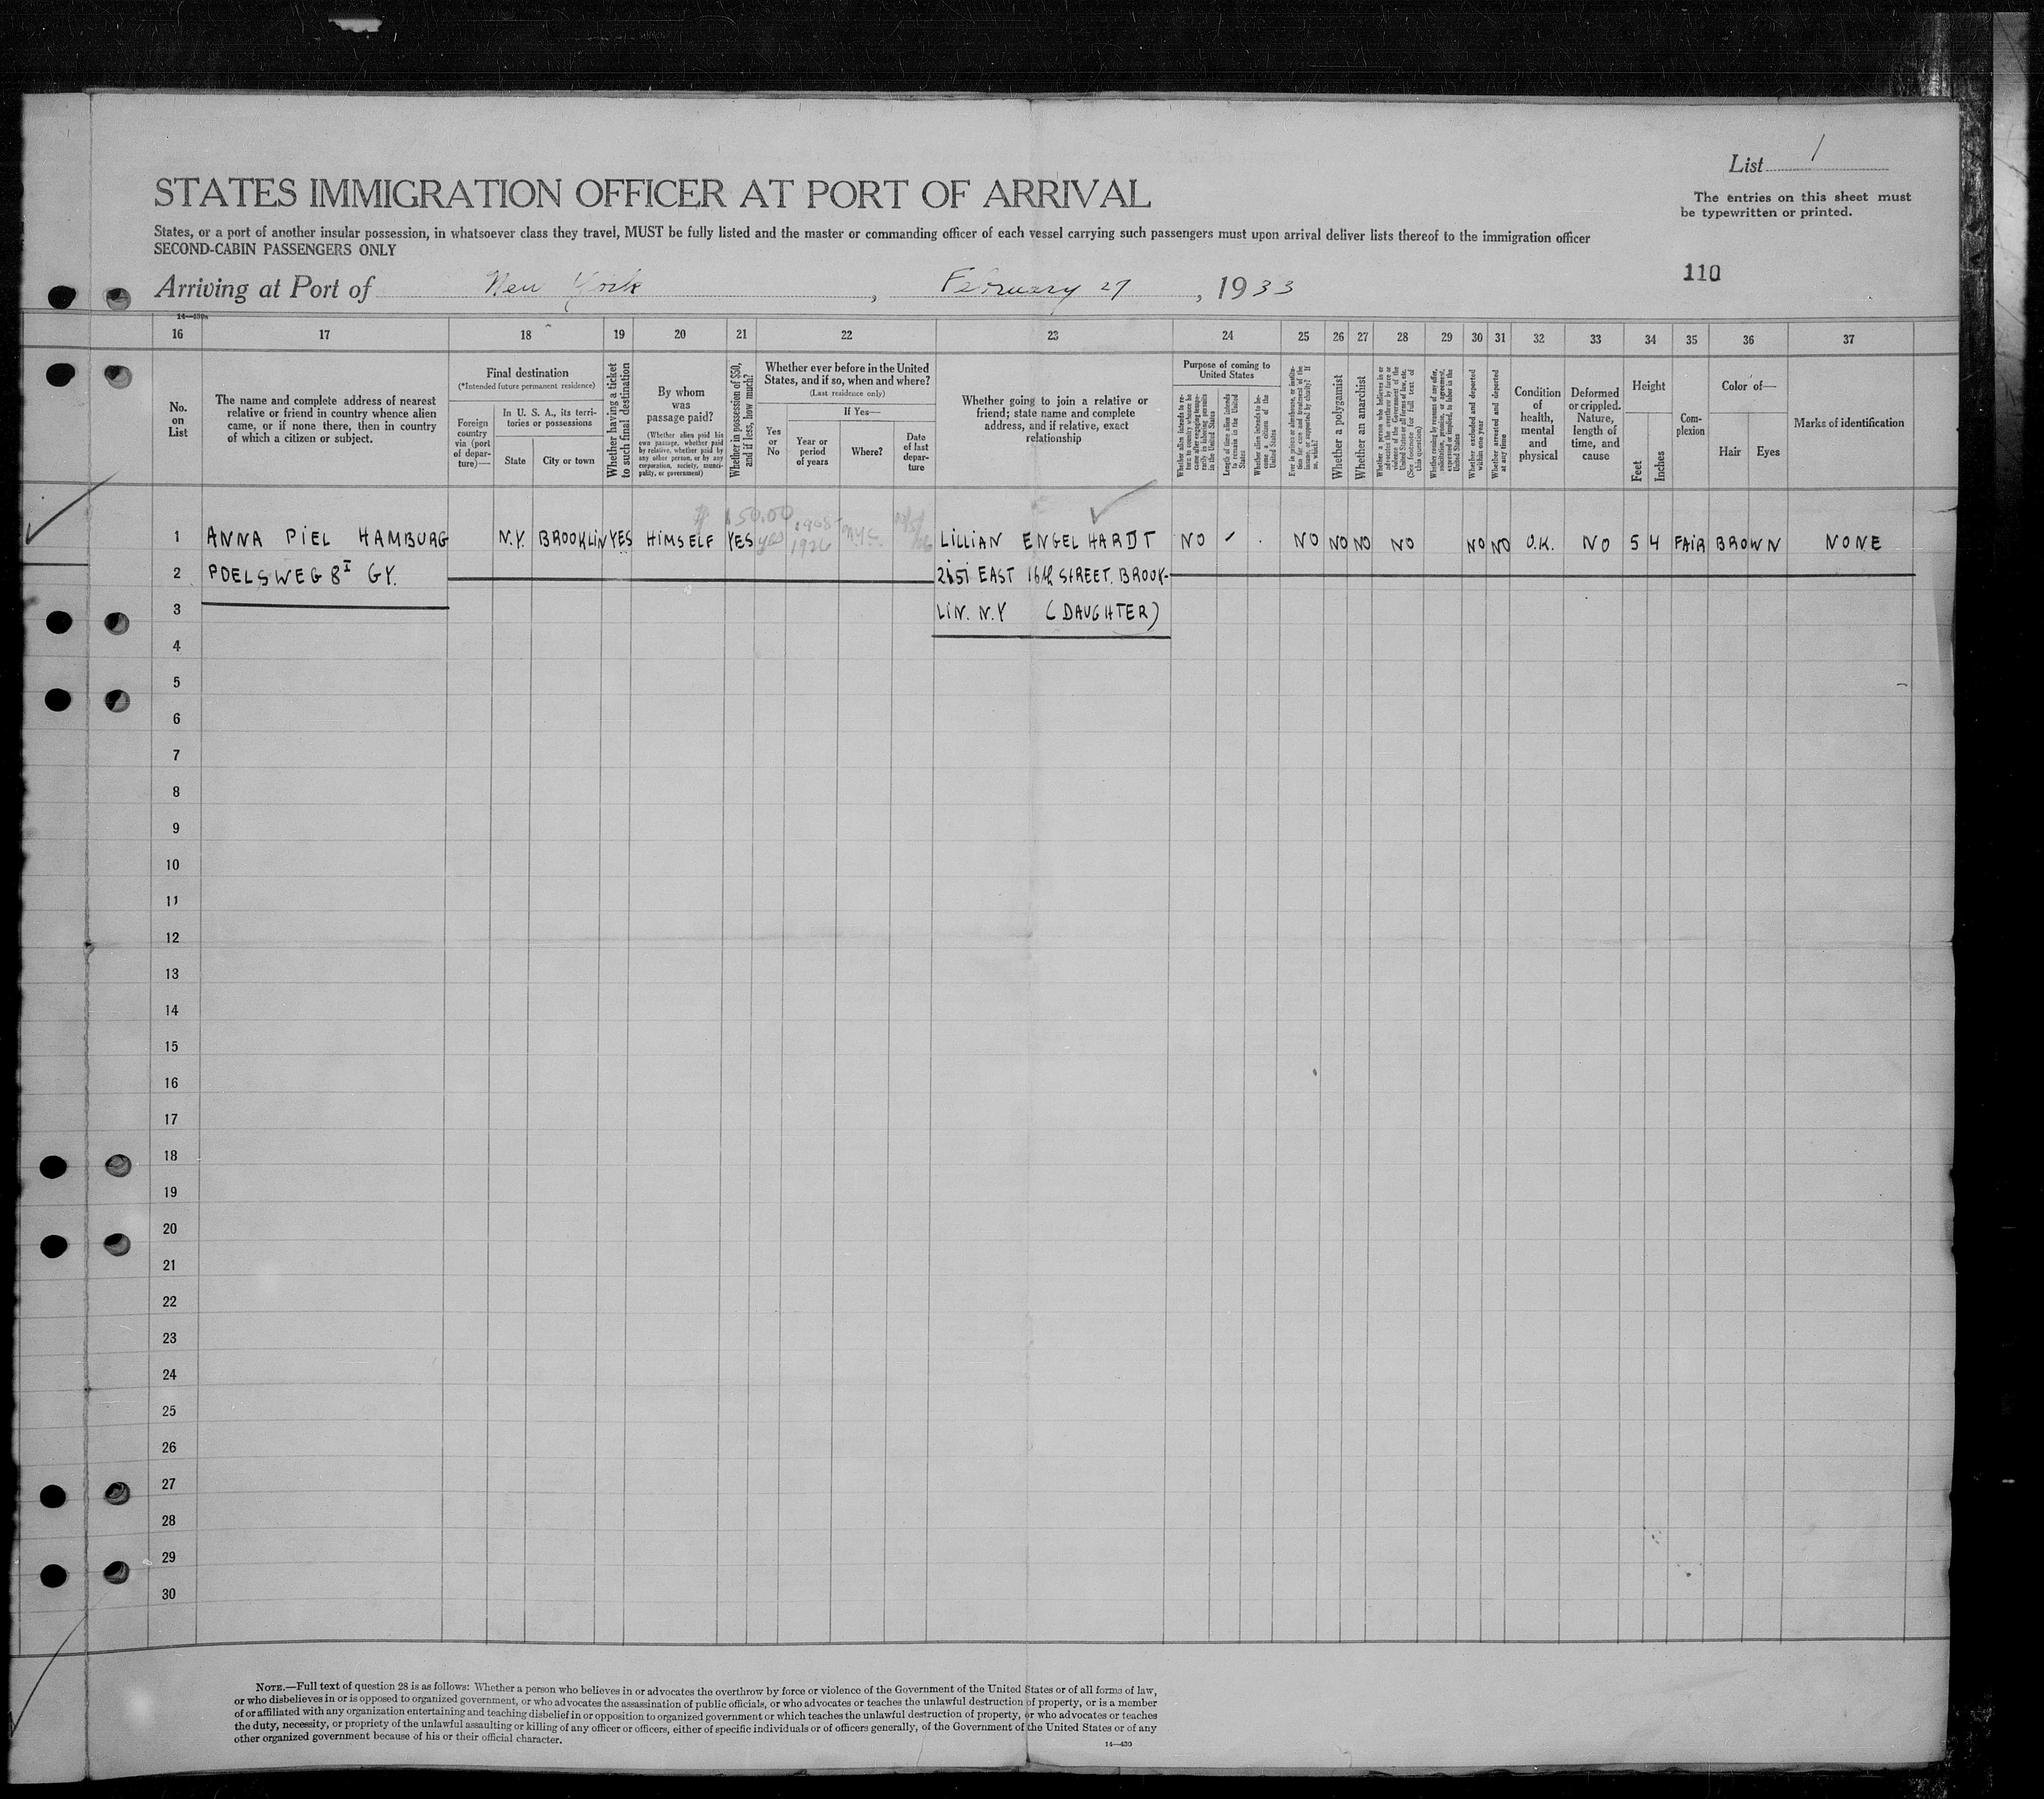 List 1
The entries on this sheet must
be typewritten or printed.
STATES IMMIGRATION OFFICER AT PORT OF ARRIVAL
States, or a port of another insular possession, in whatsoever class they travel, MUST be fully listed and the master or commanding officer of each vessel carrying such passengers must upon arrival deliver lists thereof to the immigration officer
SECOND-CABIN PASSENGERS ONLY
110
Arriving at Port of New York, February 27, 1933
16 17 18 19 20 21 22 23 24 25 26 27 28 29 30 31 32 33 34 35 36 37
No.
on
List
The name and complete address of nearest
relative or friend in country whence alien
came, or if none there, then in country
of which a citizen or subject.
Final destination
(*Intended future permanent residence)
Foreign
country
via (port
of depar-
ture)—
In U. S. A., its terri-
tories or possessions
State
City or town
Whether having a ticket
to such final destination
By whom
was
passage paid?
(Whether alien paid his
own passage, whether paid
by relative, whether paid by
any other person, or by any
corporation, society, munici-
pality, or government)
Whether in possession of $50,
and if less, how much?
Whether ever before in the United
States, and if so, when and where?
(Last residence only)
Yes
or
No
If Yes—
Year or
period
of years
Where?
Date
of last
depar-
ture
Whether going to join a relative or
friend; state name and complete
address, and if relative, exact
relationship
Purpose of coming to
United States
Whether alien intends to re-
turn to country whence he
came after engaging tempo-
rarily in laboring pursuits
in the United States
Length of time alien intends
to remain in the United
States
Whether alien intends to be-
come a citizen of the
United States
Ever in prison or almshouse, or institu-
tion for care and treatment of the
insane, or supported by charity? If
so, which?
Whether a polygamist
Whether an anarchist
Whether a person who believes in or
advocates the overthrow by force or
violence of the Government of the
United States or all forms of law, etc.
(See footnote for full text of
this question)
Whether coming by reasons of any offer,
solicitation, promise, or agreement,
expressed or implied, to labor in the
United States
Whether excluded and deported
within one year
Whether arrested and deported
at any time
Condition
of
health,
mental
and
physical
Deformed
or crippled.
Nature,
length of
time, and
cause
Height
Feet
Inches
Com-
plexion
Color of—
Hair
Eyes
Marks of identification
$ 150.00
1 ANNA PIEL HAMBURG N.Y. BROOKLIN YES HIMSELF YES yes 1908- 1926 N.Y.C. LILLIAN ENGELHARDT NO NO NO NO NO NO NO O.K. NO 5 4 FAIR BROWN NONE
2 POELSWEG 8I GY. 2151 EAST 16th STREET. BROOK-
3 LIN. N.Y (DAUGHTER)
4
5
6
7
8
9
10
11
12
13
14
15
16
17
18
19
20
21
22
23
24
25
26
27
28
29
30
NOTE.—Full text of question 28 is as follows: Whether a person who believes in or advocates the overthrow by force or violence of the Government of the United States or of all forms of law,
or who disbelieves in or is opposed to organized government, or who advocates the assassination of public officials, or who advocates or teaches the unlawful destruction of property, or is a member
of or affiliated with any organization entertaining and teaching disbelief in or opposition to organized government or which teaches the unlawful destruction of property, or who advocates or teaches
the duty, necessity, or propriety of the unlawful assaulting or killing of any officer or officers, either of specific individuals or of officers generally, of the Government of the United States or of any
other organized government because of his or their official character.
14—430